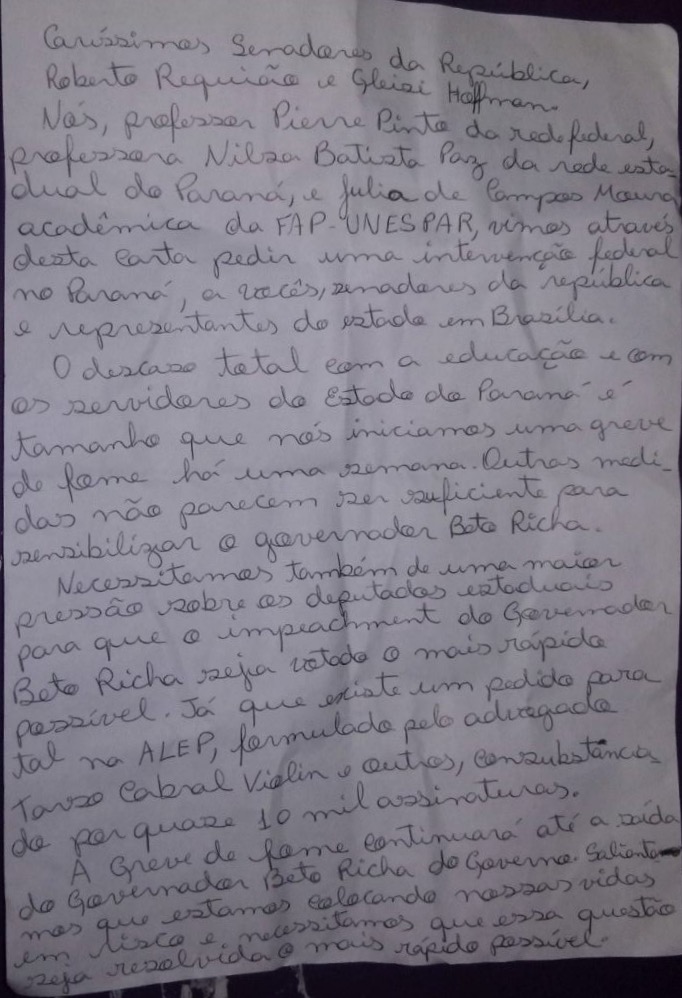 Caríssimos Senadores da República,
Roberto Requião e Gleisi Hoffman.
Nós, professor Pierre Pinto da rede federal,
professora Nilza Batista Paz da rede esta-
dual do Paraná, e Julia de Campos Moura
acadêmica da FAP-UNESPAR, vimos através
desta carta pedir uma intervenção federal
no Paraná, a vocês, senadores da república
e representantes do estado em Brasília.
O descaso total com a educação e com
os servidores do Estado do Paraná é
tamanho que nós iniciamos uma greve
de fome há uma semana. Outras medi-
das não parecem ser suficiente para
sensibilizar o governador Beto Richa.
Necessitamos também de uma maior
pressão sobre os deputados estaduais
para que o impeachment do Governador
Beto Richa seja votado o mais rápido
possível. Já que existe um pedido para
tal na ALEP, formulado pelo advogado
Tarso Cabral Violin e outros, consubstancia
do por quase 10 mil assinaturas.
A Greve de fome continuará até a saída
do Governador Beto Richa do Governo. Salienta-
mos que estamos colocando nossas vidas
em risco e necessitamos que essa questão
seja resolvida o mais rápido possível.